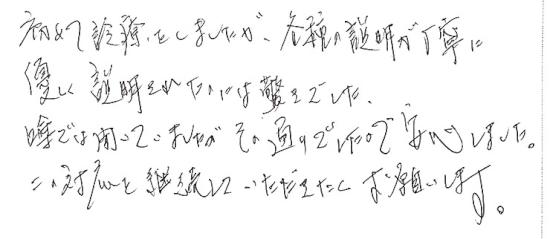 初めて診療をしましたが、各種の説明が丁寧に
優しく説明されたのには驚きでした。
噂では聞いていましたが その通りでしたので安心しました。
この対応を継続していただきたくお願いします。